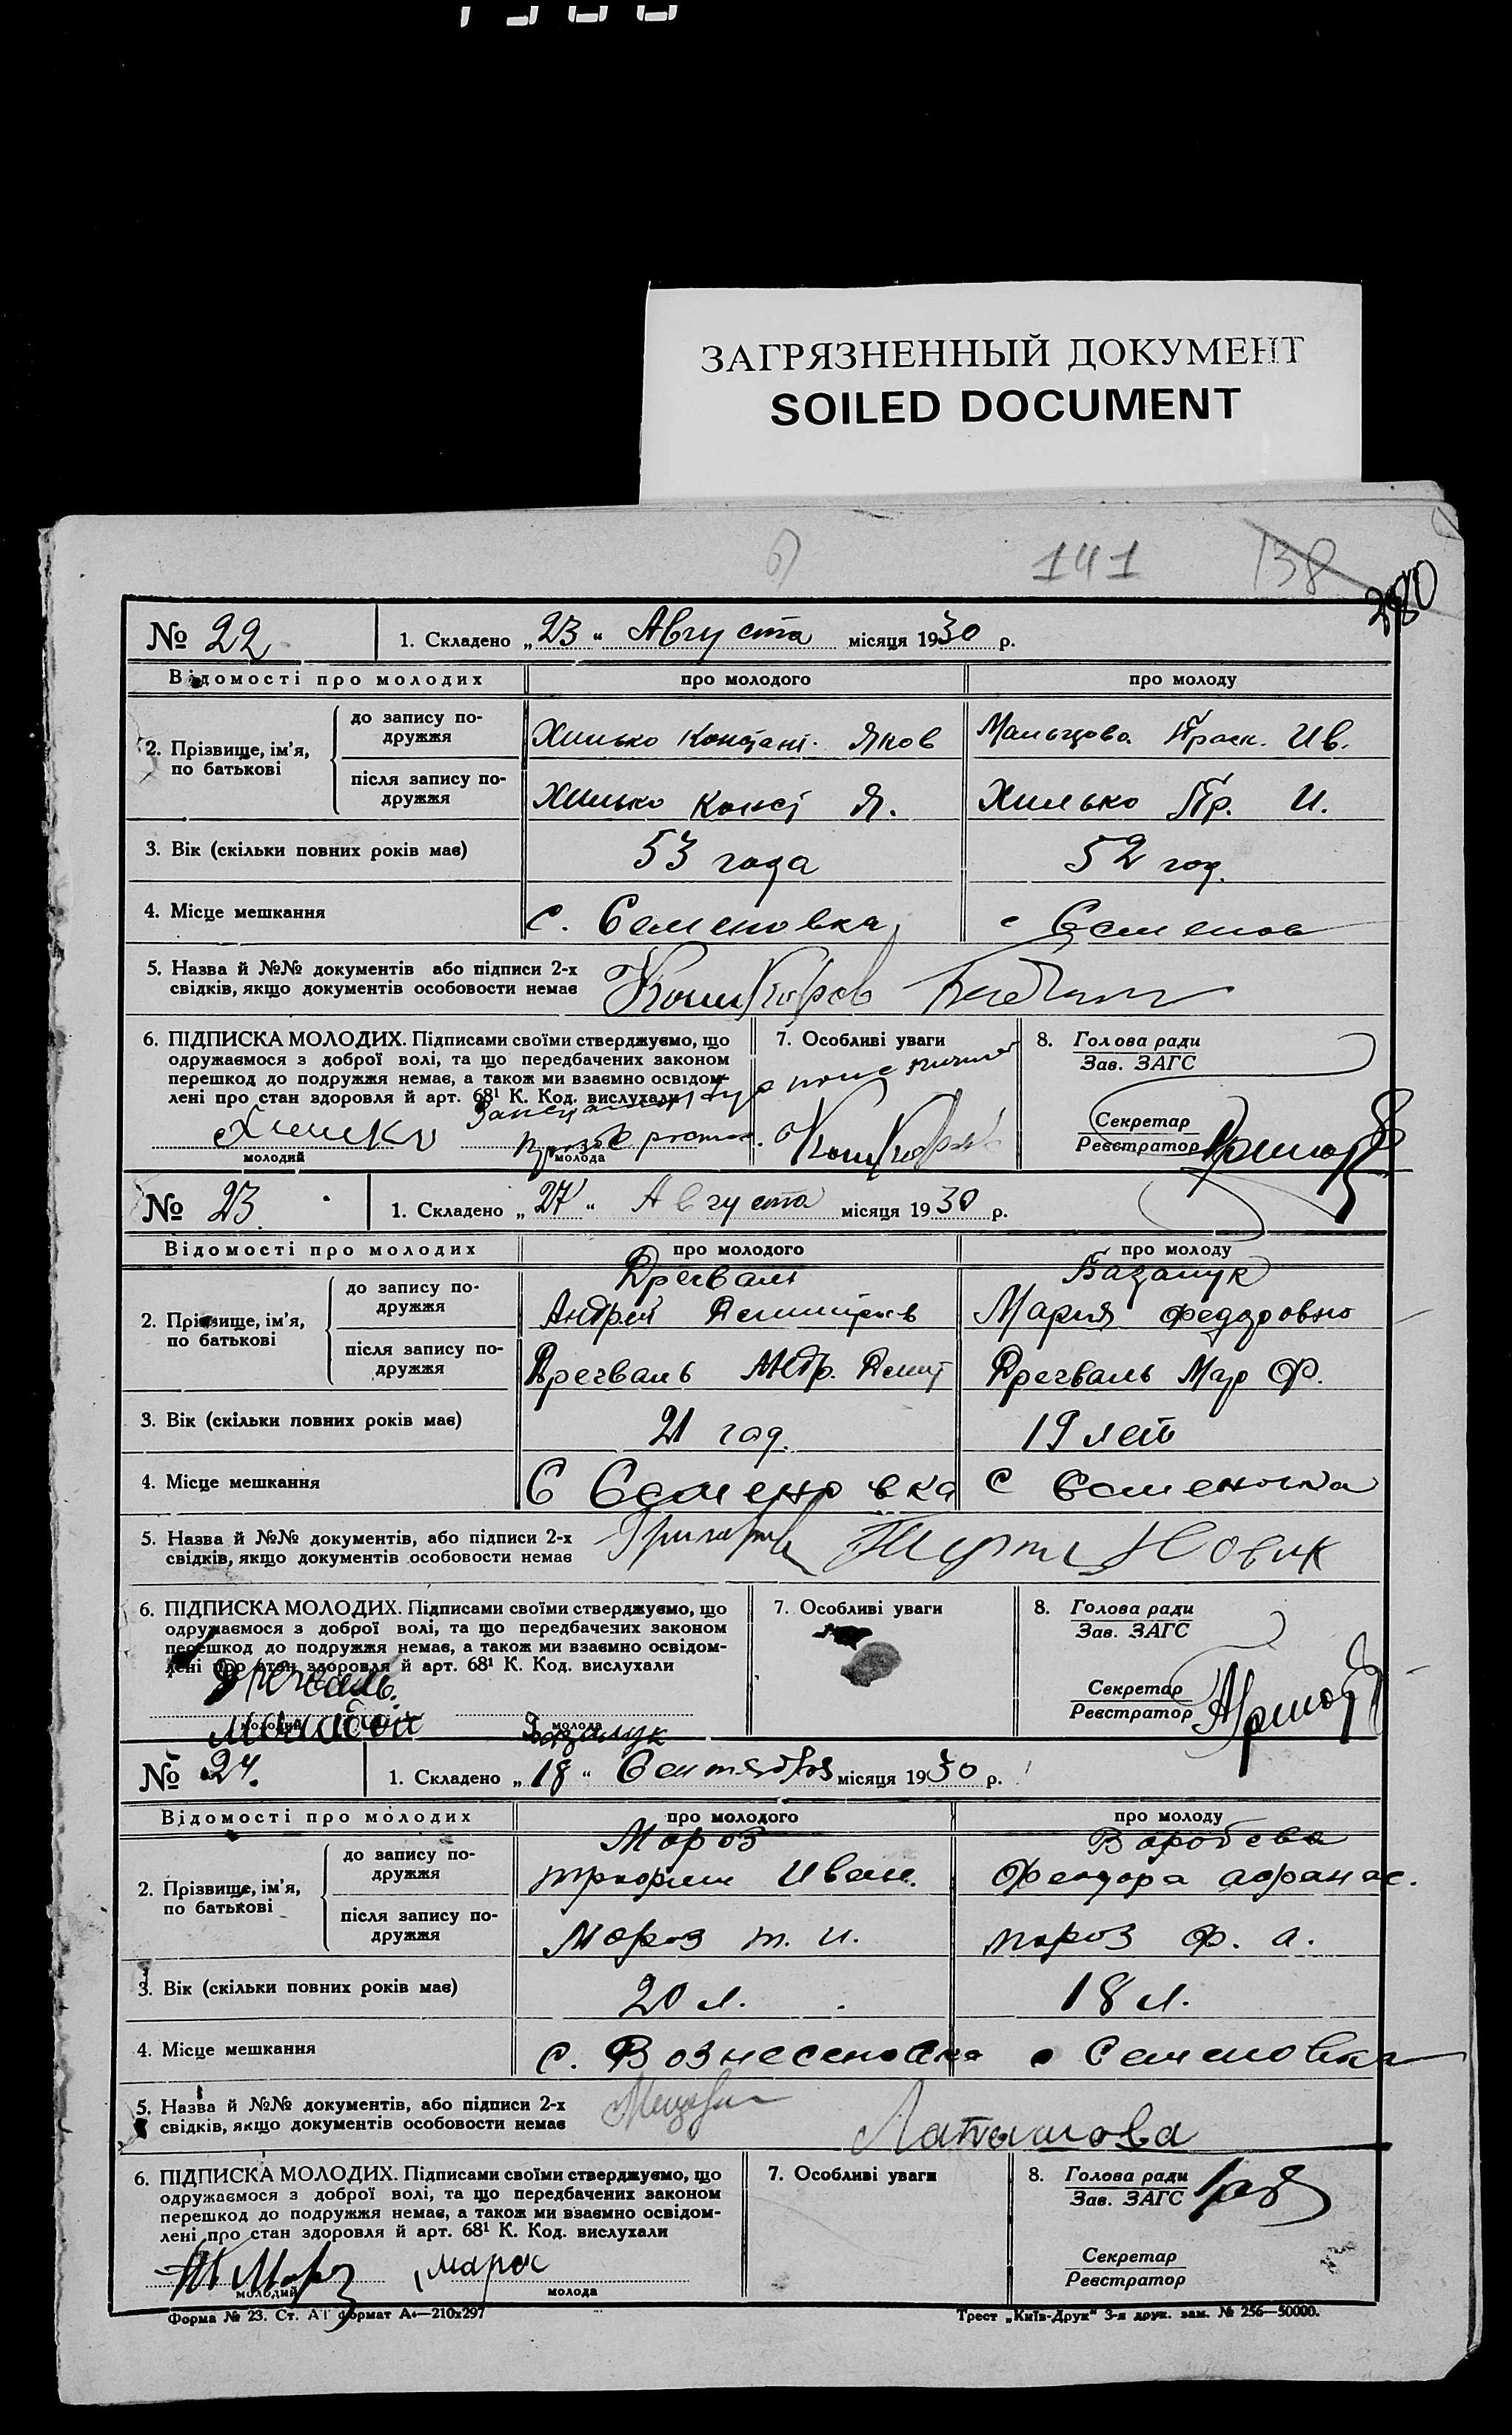 ЗАГРЯЗНЕННЫЙ ДОКУМЕНТ
SOILED DOCUMENT
141 138
№ 22 1. Складено „23“ Августа місяця 1930 р.
Відомості про молодих про молодого про молоду
2. Прізвище, ім'я, по батькові
до запису подружжя Хилько Констант. Яков Мальцова Праск. Ив.
після запису подружжя Хилько Конст Я. Хилько Пр. И.
3. Вік (скільки повних років має) 53 года 52 год.
4. Місце мешкання с. Семеновка с Семенов
5. Назва й №№ документів або підписи 2-х
свідків, якщо документів особовости немає
6. ПІДПИСКА МОЛОДИХ. Підписами своїми стверджуємо, що
одружаємося з доброї волі, та що передбачених законом
перешкод до подружжя немає, а також ми взаємно освідом-
лені про стан здоровля й арт. 68¹ К. Код. вислухали
молодий молода
7. Особливі уваги
8. Голова ради
Зав. ЗАГС
Секретар
Реєстратор
№ 23. 1. Складено „27“ Августа місяця 1930 р.
Відомості про молодих про молодого про молоду
2. Прізвище, ім'я, по батькові
Дрегваль Базалук
до запису подружжя Андрей Демитрев Мария Федоровно
після запису подружжя Дрегваль Андр. Демит Дрегваль Мар Ф.
3. Вік (скільки повних років має) 21 год. 19 лет
4. Місце мешкання С Семеновка с Семеновка
5. Назва й №№ документів, або підписи 2-х
свідків, якщо документів особовости немає
Новик
6. ПІДПИСКА МОЛОДИХ. Підписами своїми стверджуємо, що
одружаємося з доброї волі, та що передбачених законом
перешкод до подружжя немає, а також ми взаємно освідом-
лені про стан здоровля й арт. 68¹ К. Код. вислухали
молодий молода
Базалук
7. Особливі уваги
8. Голова ради
Зав. ЗАГС
Секретар
Реєстратор
№ 24. 1. Складено „18“ Сентября місяця 1930 р.
Відомості про молодих про молодого про молоду
2. Прізвище, ім'я, по батькові
Мороз Воробева
до запису подружжя трофим Иван. Феодора афанас.
після запису подружжя Мороз т. и. мороз Ф. а.
3. Вік (скільки повних років має) 20 л. 18 л.
4. Місце мешкання с. Вознесеновка с Семеновка
5. Назва й №№ документів, або підписи 2-х
свідків, якщо документів особовости немає
Латышова
6. ПІДПИСКА МОЛОДИХ. Підписами своїми стверджуємо, що
одружаємося з доброї волі, та що передбачених законом
перешкод до подружжя немає, а також ми взаємно освідом-
лені про стан здоровля й арт. 68¹ К. Код. вислухали
молодий молода
7. Особливі уваги
8. Голова ради
Зав. ЗАГС
Секретар
Реєстратор
Форма № 23. Ст. АІ формат А₄—210х297 Трест „Київ-Друк“ 3-я друк. зам. № 256—50000.